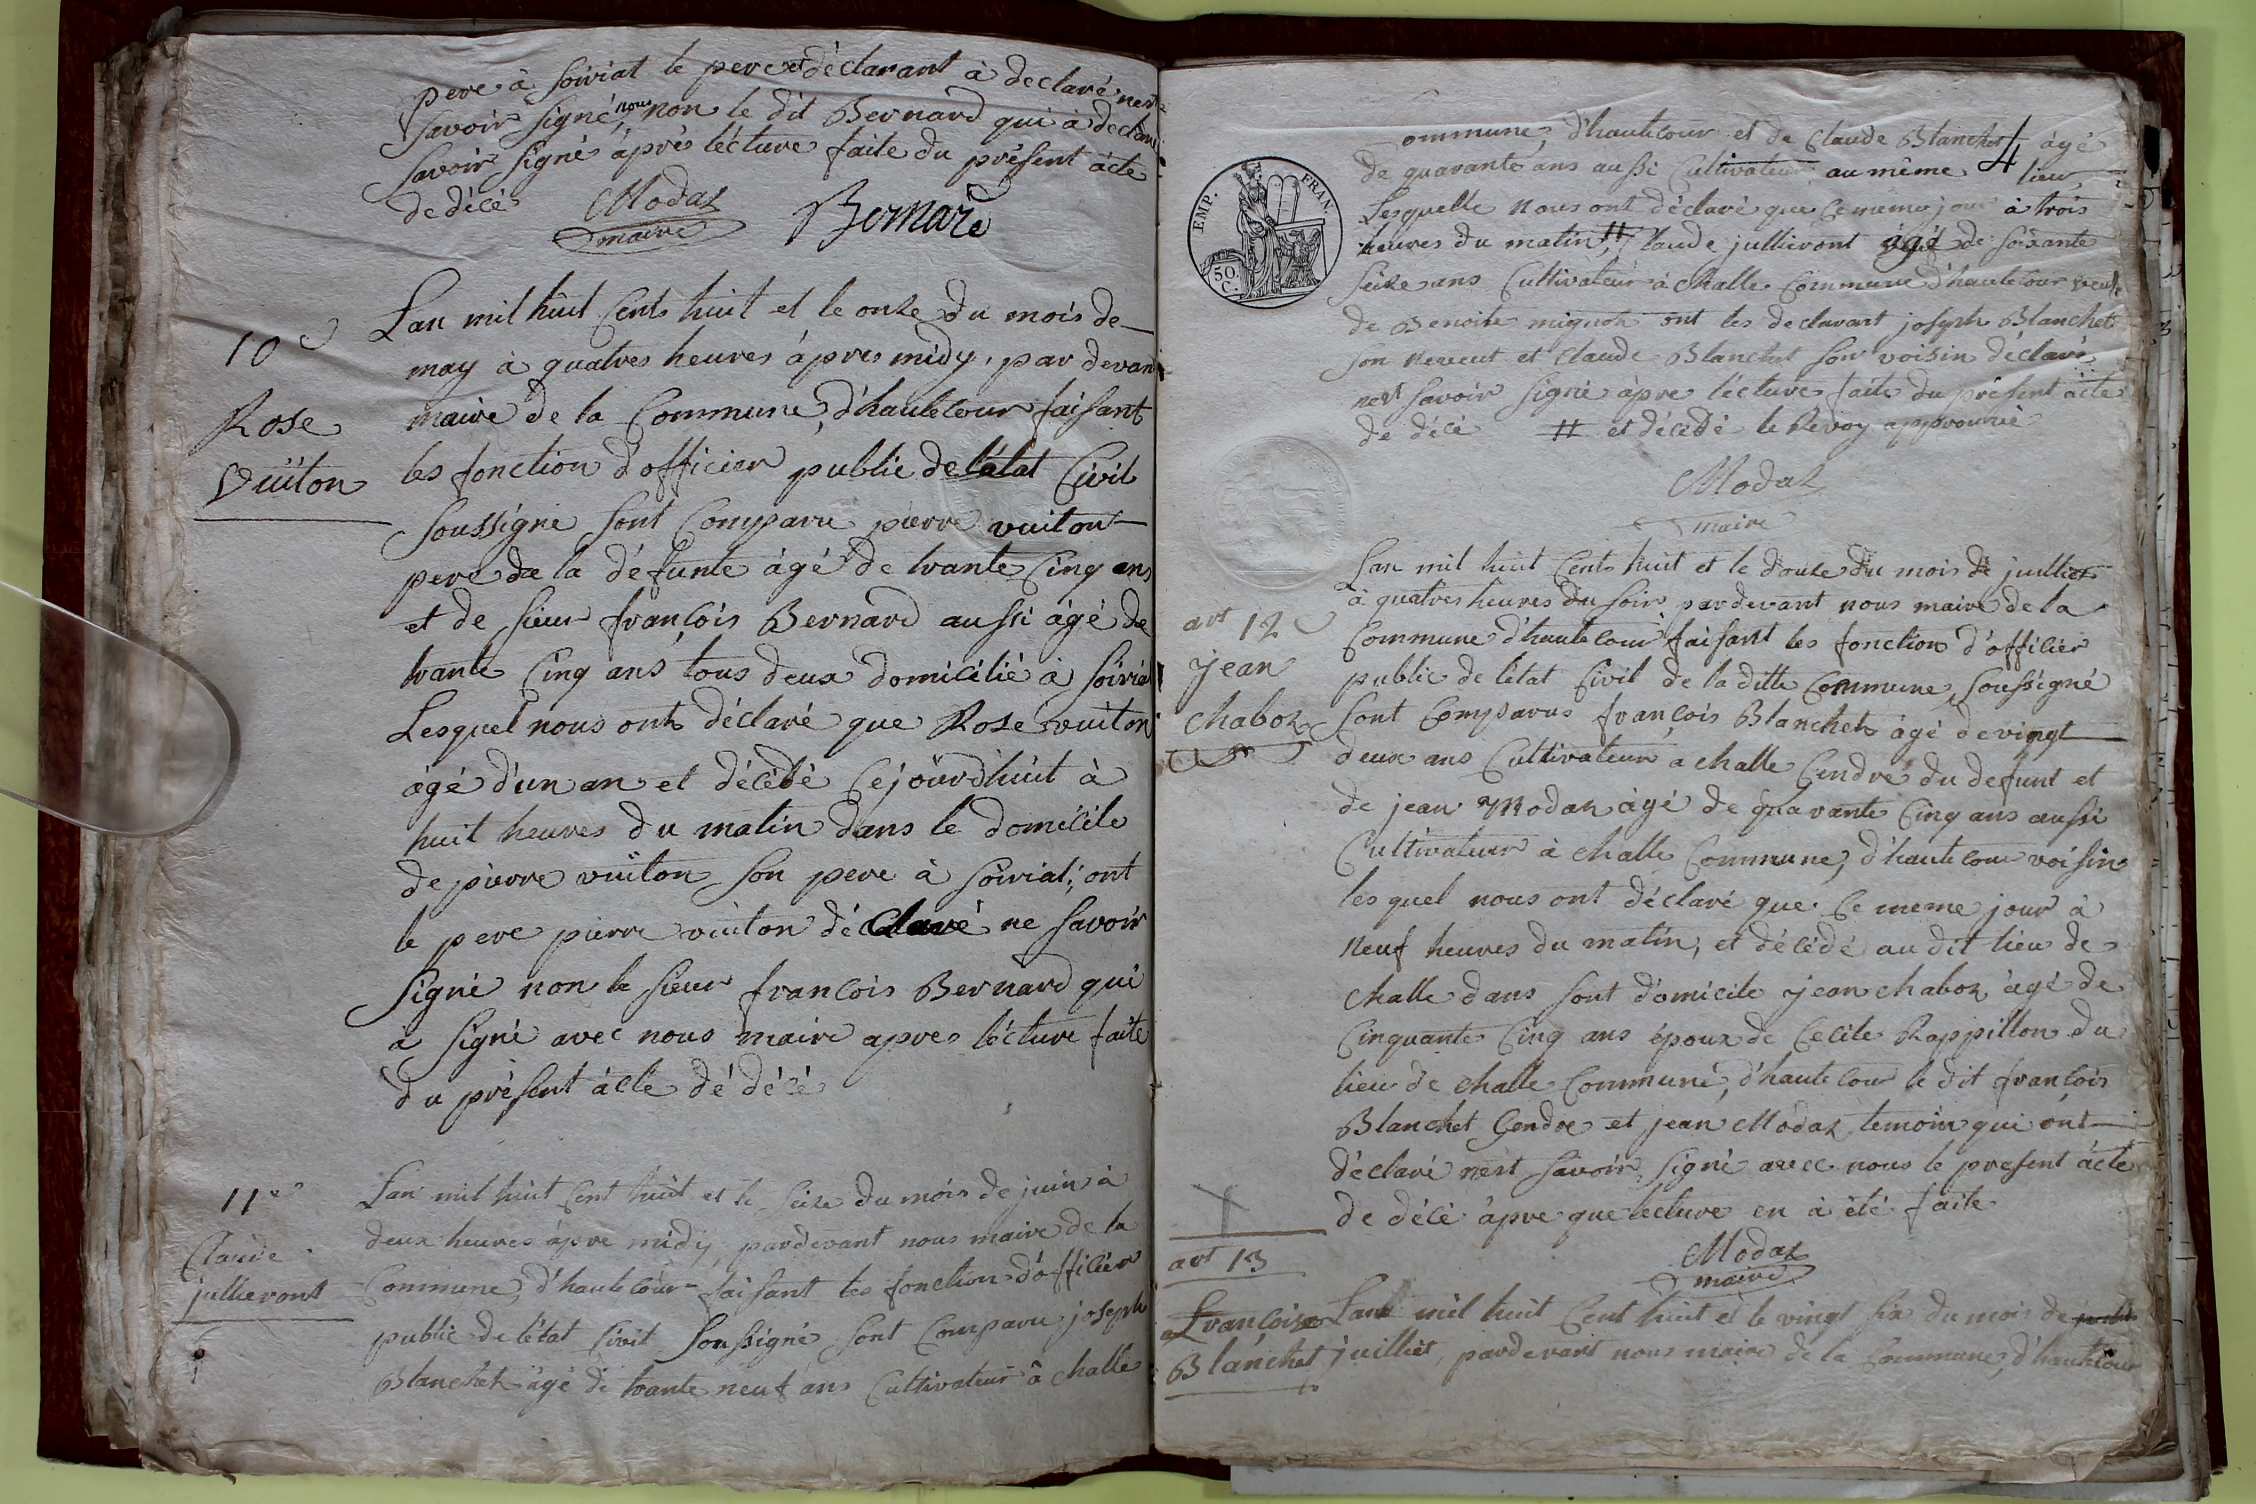 pere à soiriat le pere et déclarant à declaré nest
savoir signé nous non le dit Bernard qui à declaré
savoir signé aprés lécture faite du présent ácte
de décé
Modaz
maire
Bernard
10e
Rose
Vuiton
Lan mil huit Cents huit et le onze du mois de
may à quatres heures ápres midy, par devan
maire de la Commune, d'hautecour faisant
les fonction d'officier public de létat Civil
soussigné sont Comparu pierre vuiton
pere de la défunte ágé de trante Cinq ans
et de sieur françois Bernard aussi ágé de
trante Cinq ans tous deux domicilié à soiria
Lesquel nous onts déclaré que Rose vuiton
ágé d'un an et décédé Cejourdhuit à
huit heures du matin dans le domicile
de pierre vuiton son pere à soiriat, ont
le pere pierre vuiton déClaré ne savoir
signé non le sieur françois Bernard qui
à signé avec nous maire apres lécture faite
du présent ácte dé décé
11e
Claude
jullieront
Lan mil huit Cent huit et le seize du mois de juin à
deux heures ápre midy, pardevant nous maire de la
Commune, d'hautecour faisant les fonction d'officier
public de létat Civil soussigné sont Comparu joseph
Blanchet ágé de trante neuf ans Cultivateur à challe
4
EMP. FRAN.
50. C.
Commune, d'hautecour et de Claude Blanchet ágé
de quarante ans aussi Cultivateur au même lieu
Lesquelle Nous ont déclaré que Ce même jour à trois
heures du matin, # Claude jullieront ágé de soixante
seize ans Cultivateur à challe Commune d'hautecour veuf
de Benoite mignot ont les declarant joseph Blanchet
son neveut et Claude Blanchet son voisin déclaré
nest savoir signé ápre lécture faite du présent ácte
de décé # et décédé le Renvoy approuvée
Modaz
maire
art 12
jean
chaboz
Lan mil huit Cents huit et le douze du mois de juilliet
à quatres heures du soir pardevant nous maire de la
Commune d'hautecour faisant les fonction d'officier
public de létat Civil de la ditte Commune, soussigné
sont Comparus françois Blanchet ágé de vingt
deux ans Cultivateur à challe Gendre du defunt et
de jean Modaz ágé de quarante Cinq ans aussi
Cultivateur à challe Commune, d'hautecour voisin
lesquel nous ont déclaré que Ce meme jour à
neuf heures du matin, et décédé au dit lieu de
challe dans sont domicile jean chaboz ágé de
Cinquante Cinq ans époux de Cecile Rappillon du
lieu de challe Commune, d'hautecour le dit françois
Blanchet Gendre et jean Modaz temoin qui ont
déclaré nest savoir signé avec nous le present ácte
de décé ápre que lecture en à été faite
Modaz
maire
art 13
Françoise
Blanchet
Lan mil huit Cent huit et le vingt six du mois de
juilliet, pardevant nous maire de la Commune, d'hautecour